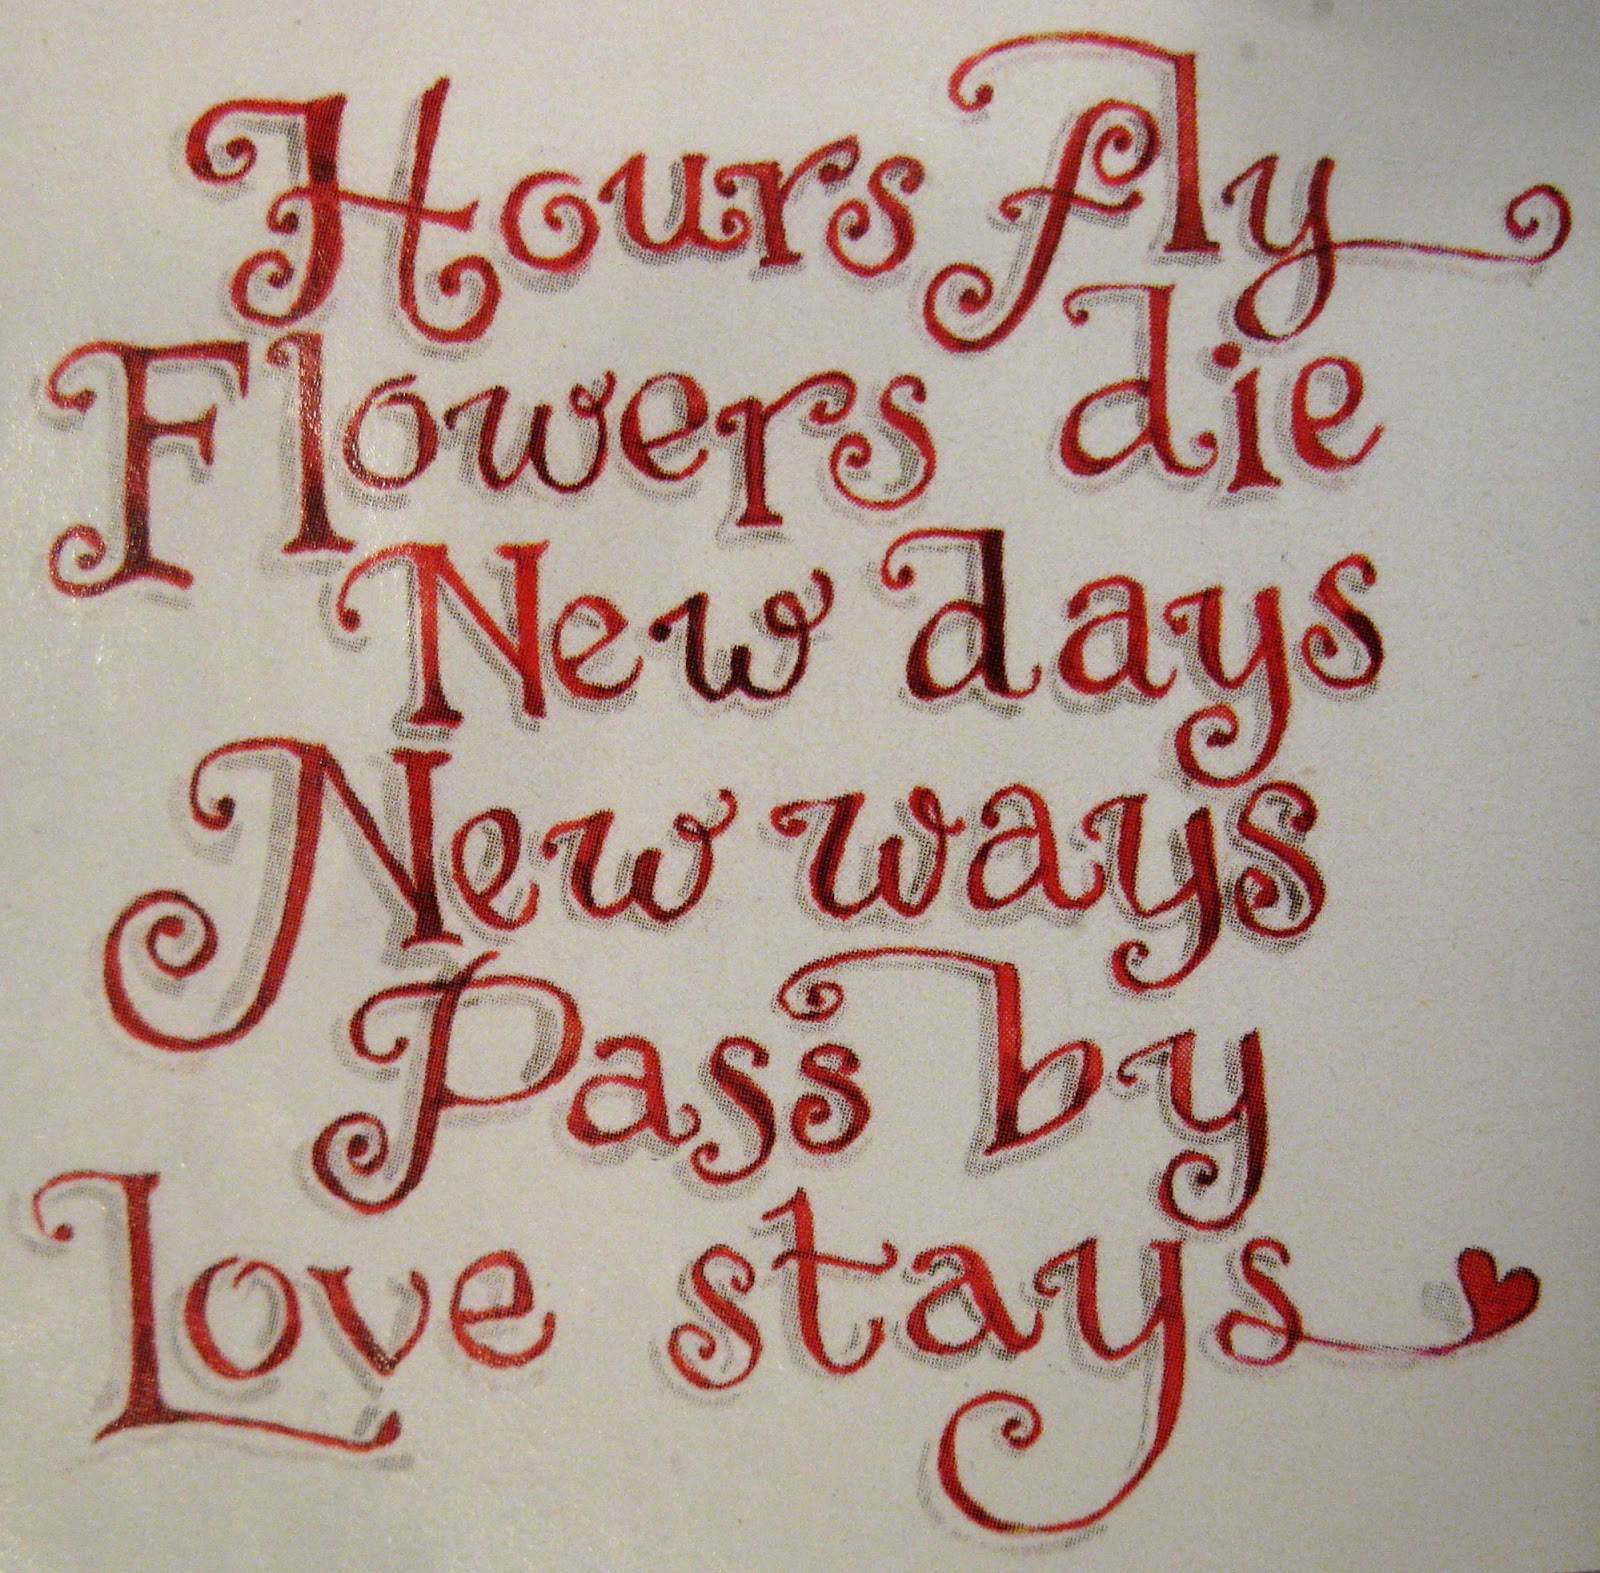 Hours fly
Flowers die
New days
New ways
Pass by
Love stays